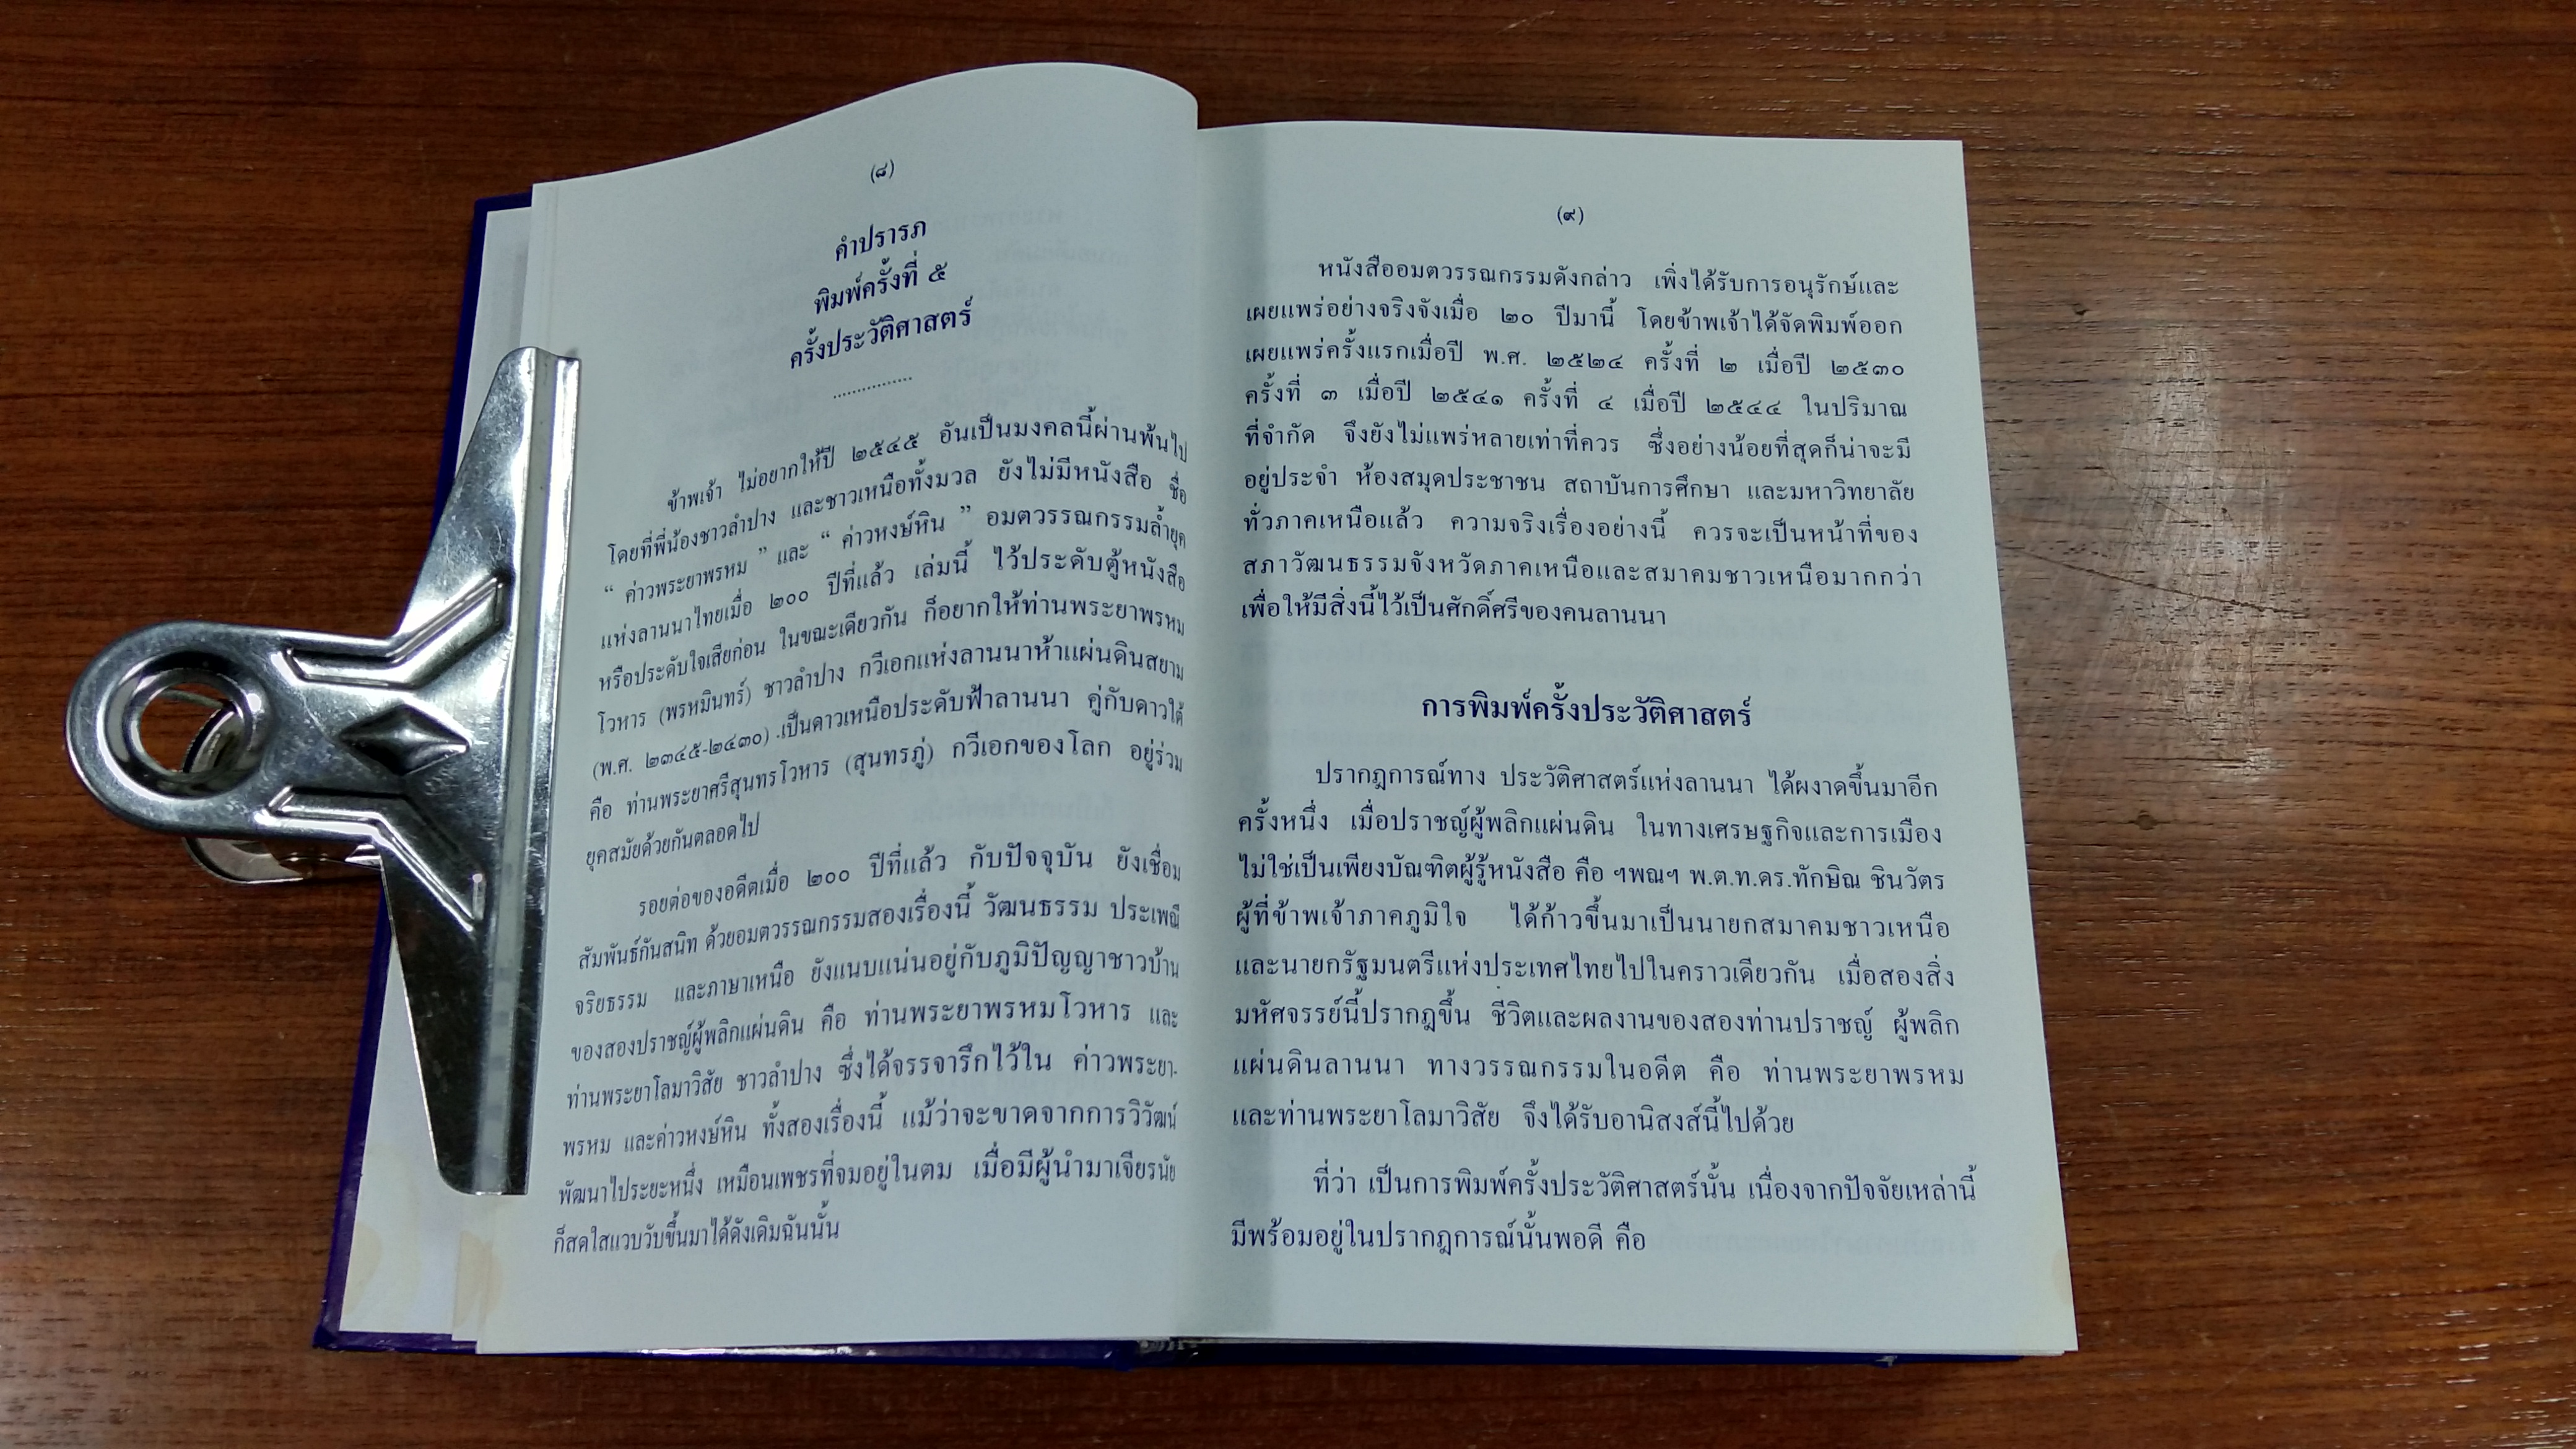 (๘)
คำปรารภ
พิมพ์ครั้งที่ ๕
ครั้งประวัติศาสตร์
...............
ข้าพเจ้า ไม่อยากให้ปี ๒๕๔๕ อันเป็นมงคลนี้ผ่านพ้นไป
โดยที่พี่น้องชาวลำปาง และชาวเหนือทั้งมวล ยังไม่มีหนังสือ ชื่อ
“ ค่าวพระยาพรหม ” และ “ ค่าวหงษ์หิน ” อมตวรรณกรรมล้ำยุค
แห่งลานนาไทยเมื่อ ๒๐๐ ปีที่แล้ว เล่มนี้ ไว้ประดับตู้หนังสือ
หรือประดับใจเสียก่อน ในขณะเดียวกัน ก็อยากให้ท่านพระยาพรหม
โวหาร (พรหมินทร์) ชาวลำปาง กวีเอกแห่งลานนาห้าแผ่นดินสยาม
(พ.ศ. ๒๓๔๕-๒๔๓๐) .เป็นดาวเหนือประดับฟ้าลานนา คู่กับดาวใต้
คือ ท่านพระยาศรีสุนทรโวหาร (สุนทรภู่) กวีเอกของโลก อยู่ร่วม
ยุคสมัยด้วยกันตลอดไป
รอยต่อของอดีตเมื่อ ๒๐๐ ปีที่แล้ว กับปัจจุบัน ยังเชื่อม
สัมพันธ์กันสนิท ด้วยอมตวรรณกรรมสองเรื่องนี้ วัฒนธรรม ประเพณี
จริยธรรม และภาษาเหนือ ยังแนบแน่นอยู่กับภูมิปัญญาชาวบ้าน
ของสองปราชญ์ผู้พลิกแผ่นดิน คือ ท่านพระยาพรหมโวหาร และ
ท่านพระยาโลมาวิสัย ชาวลำปาง ซึ่งได้จรรจารึกไว้ใน ค่าวพระยา-
พรหม และค่าวหงษ์หิน ทั้งสองเรื่องนี้ แม้ว่าจะขาดจากการวิวัฒน์
พัฒนาไประยะหนึ่ง เหมือนเพชรที่จมอยู่ในตม เมื่อมีผู้นำมาเจียรนัย
ก็สดใสแวบวับขึ้นมาได้ดังเดิมฉันนั้น
(๙)
หนังสืออมตวรรณกรรมดังกล่าว เพิ่งได้รับการอนุรักษ์และ
เผยแพร่อย่างจริงจังเมื่อ ๒๐ ปีมานี้ โดยข้าพเจ้าได้จัดพิมพ์ออก
เผยแพร่ครั้งแรกเมื่อปี พ.ศ. ๒๕๒๔ ครั้งที่ ๒ เมื่อปี ๒๕๓๐
ครั้งที่ ๓ เมื่อปี ๒๕๔๑ ครั้งที่ ๔ เมื่อปี ๒๕๔๔ ในปริมาณ
ที่จำกัด จึงยังไม่แพร่หลายเท่าที่ควร ซึ่งอย่างน้อยที่สุดก็น่าจะมี
อยู่ประจำ ห้องสมุดประชาชน สถาบันการศึกษา และมหาวิทยาลัย
ทั่วภาคเหนือแล้ว ความจริงเรื่องอย่างนี้ ควรจะเป็นหน้าที่ของ
สภาวัฒนธรรมจังหวัดภาคเหนือและสมาคมชาวเหนือมากกว่า
เพื่อให้มีสิ่งนี้ไว้เป็นศักดิ์ศรีของคนลานนา
การพิมพ์ครั้งประวัติศาสตร์
ปรากฎการณ์ทาง ประวัติศาสตร์แห่งลานนา ได้ผงาดขึ้นมาอีก
ครั้งหนึ่ง เมื่อปราชญ์ผู้พลิกแผ่นดิน ในทางเศรษฐกิจและการเมือง
ไม่ใช่เป็นเพียงบัณฑิตผู้รู้หนังสือ คือ ฯพณฯ พ.ต.ท.ดร.ทักษิณ ชินวัตร
ผู้ที่ข้าพเจ้าภาคภูมิใจ ได้ก้าวขึ้นมาเป็นนายกสมาคมชาวเหนือ
และนายกรัฐมนตรีแห่งประเทศไทยไปในคราวเดียวกัน เมื่อสองสิ่ง
มหัศจรรย์นี้ปรากฎขึ้น ชีวิตและผลงานของสองท่านปราชญ์ ผู้พลิก
แผ่นดินลานนา ทางวรรณกรรมในอดีต คือ ท่านพระยาพรหม
และท่านพระยาโลมาวิสัย จึงได้รับอานิสงส์นี้ไปด้วย
ที่ว่า เป็นการพิมพ์ครั้งประวัติศาสตร์นั้น เนื่องจากปัจจัยเหล่านี้
มีพร้อมอยู่ในปรากฎการณ์นั้นพอดี คือ